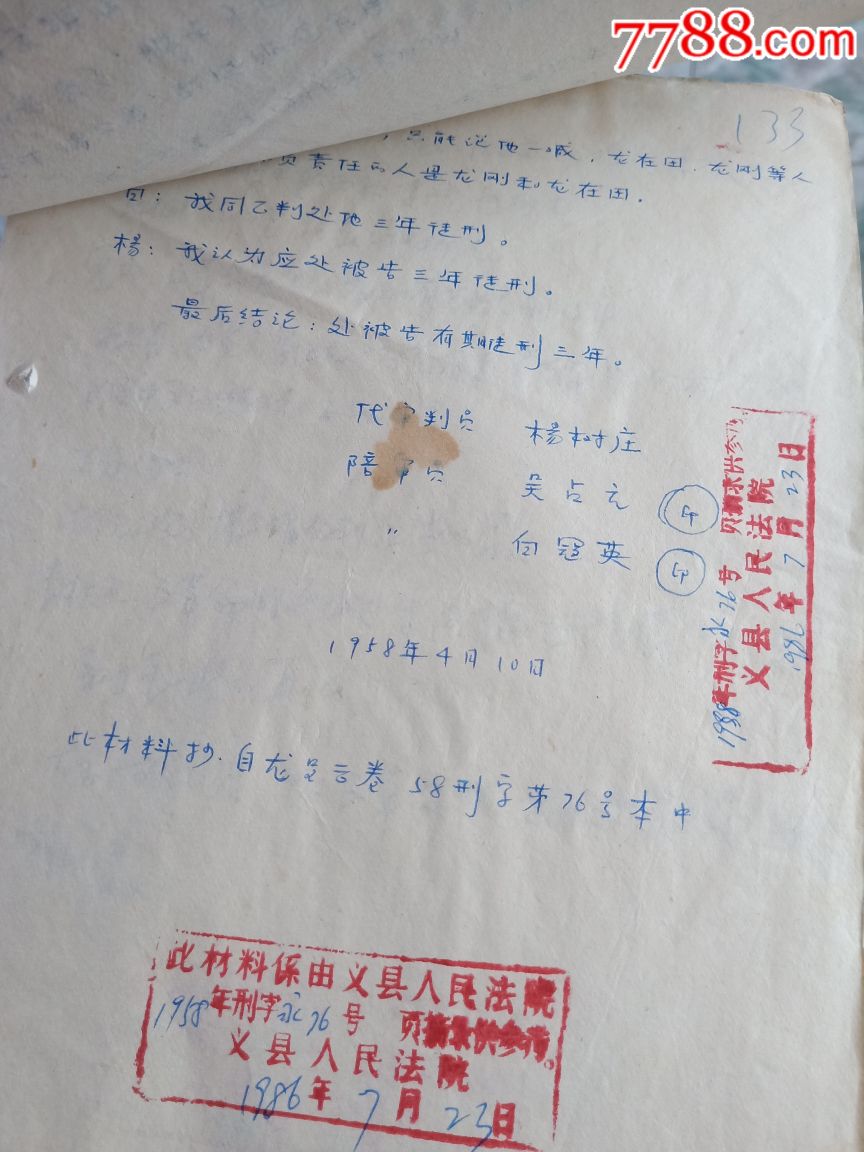 7788.com
133
，只能说他一喊，龙在田、龙刚等人
负责任的人是龙刚和龙在田．
白：我同乙判处他三年徒刑。
杨：我认为应处被告三年徒刑。
最后结论：处被告有期徒刑三年。
代审判员 杨树庄
陪审员 吴占元 印
〃 白冠英 印
1958年4月10日
此材料抄自龙呈云卷 58刑字第76号本中
1958年刑字永76号 页摘录供参考
义县人民法院
1986年7月23日
此材料係由义县人民法院
1958年刑字永76号 页摘录供参考。
义县人民法院
1986年7月23日